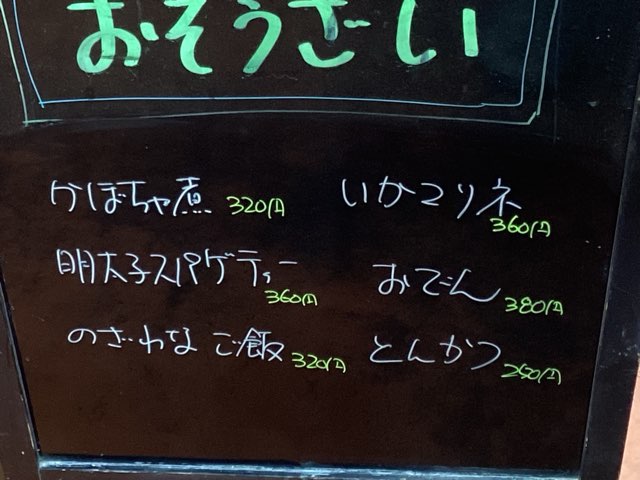 おそうざい
かぼちゃ煮 320円
いかマリネ 360円
明太子スパゲティー 360円
おでん 380円
のざわな ご飯 320円
とんかつ 250円